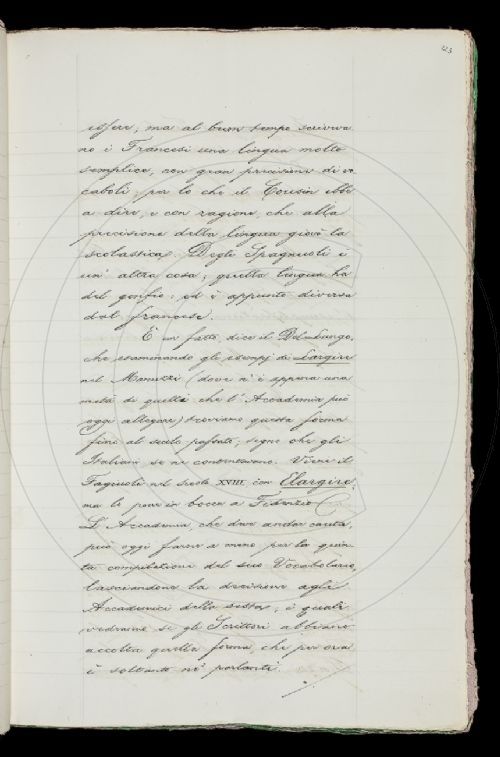 123
essere; ma al buon tempo scriveva
no i Francesi una lingua molto
semplice, con gran precisione di vo
caboli; per lo che il Cousin ebbe
a dire, e con ragione, che alla
precisione della lingua giovò la
scolastica. Degli Spagnuoli è
un' altra cosa; quella lingua ha
del gonfio; ed è appunto diversa
dal francese.
È un fatto, dice il Del Lungo,
che esaminando gli esempj di Largire
nel Manuzzi (dove n' è appena una
metà di quelli che l' Accademia può
oggi allegare) troviamo questa forma
fino al secolo passato; segno che gli
Italiani se ne contentavano. Viene il
Fagiuoli nel secolo XVIII, con Elargire,
ma lo pone in bocca a Fidenzio
L' Accademia, che deve andar cauta,
può oggi farne a meno per la quin
ta compilazione del suo Vocabolario,
lasciandone la decisione agli
Accademici della sesta; i quali
vedranno se gli Scrittori abbiano
accolta quella forma, che per ora
è soltanto ne' parlanti.